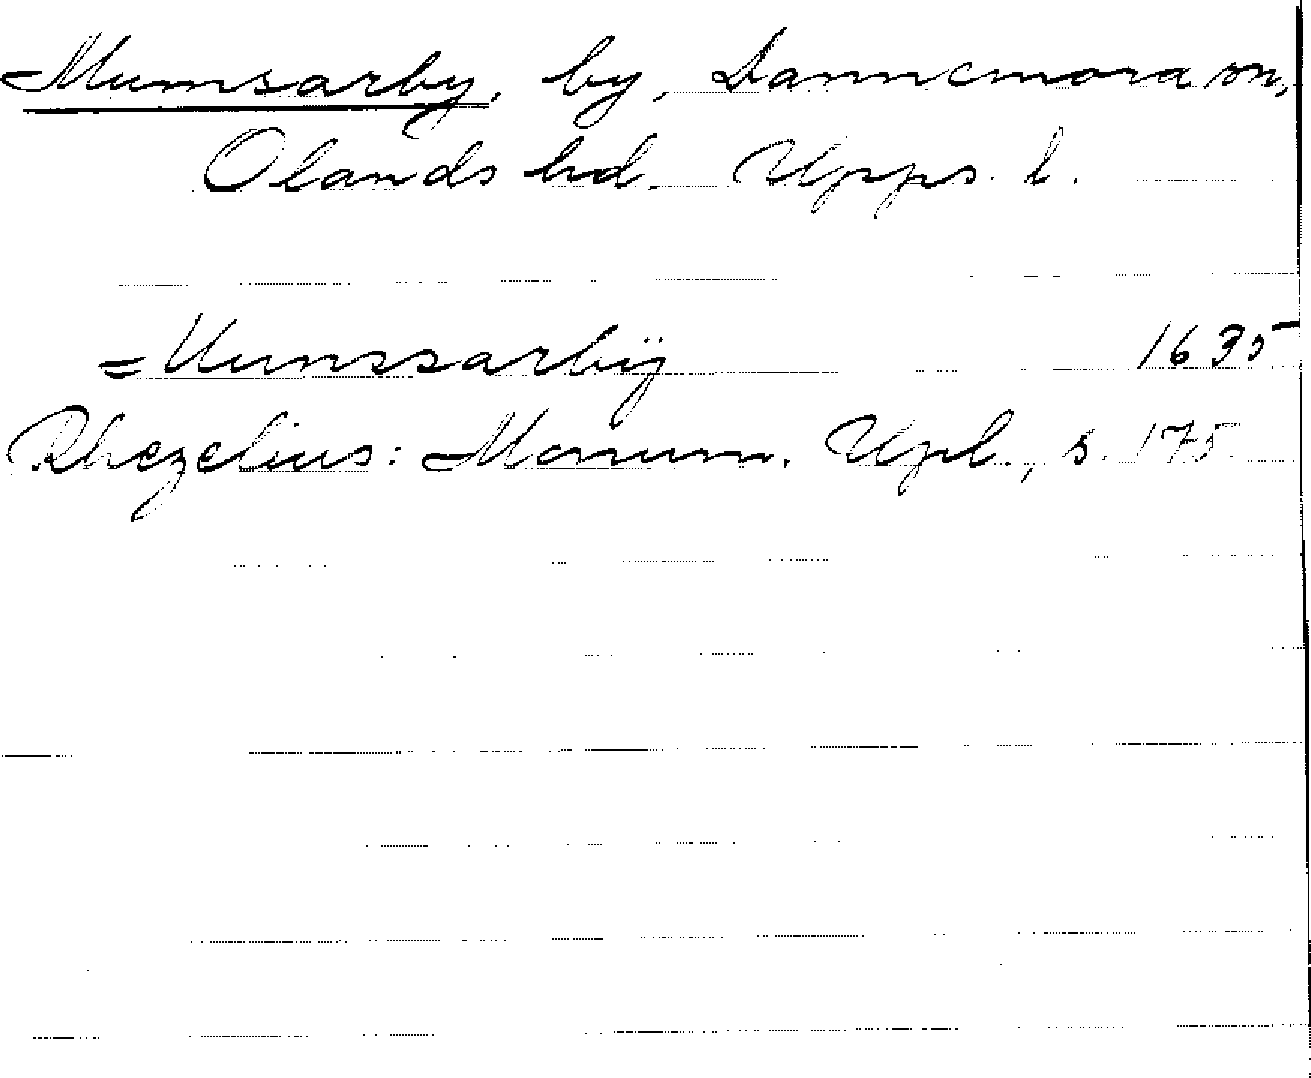 Mumsarby, by, Dannemora sn,
Olands hd. Upps. l.
= Munssarbÿ 1635
Rhezelius: Monum. Upl., s. 175.